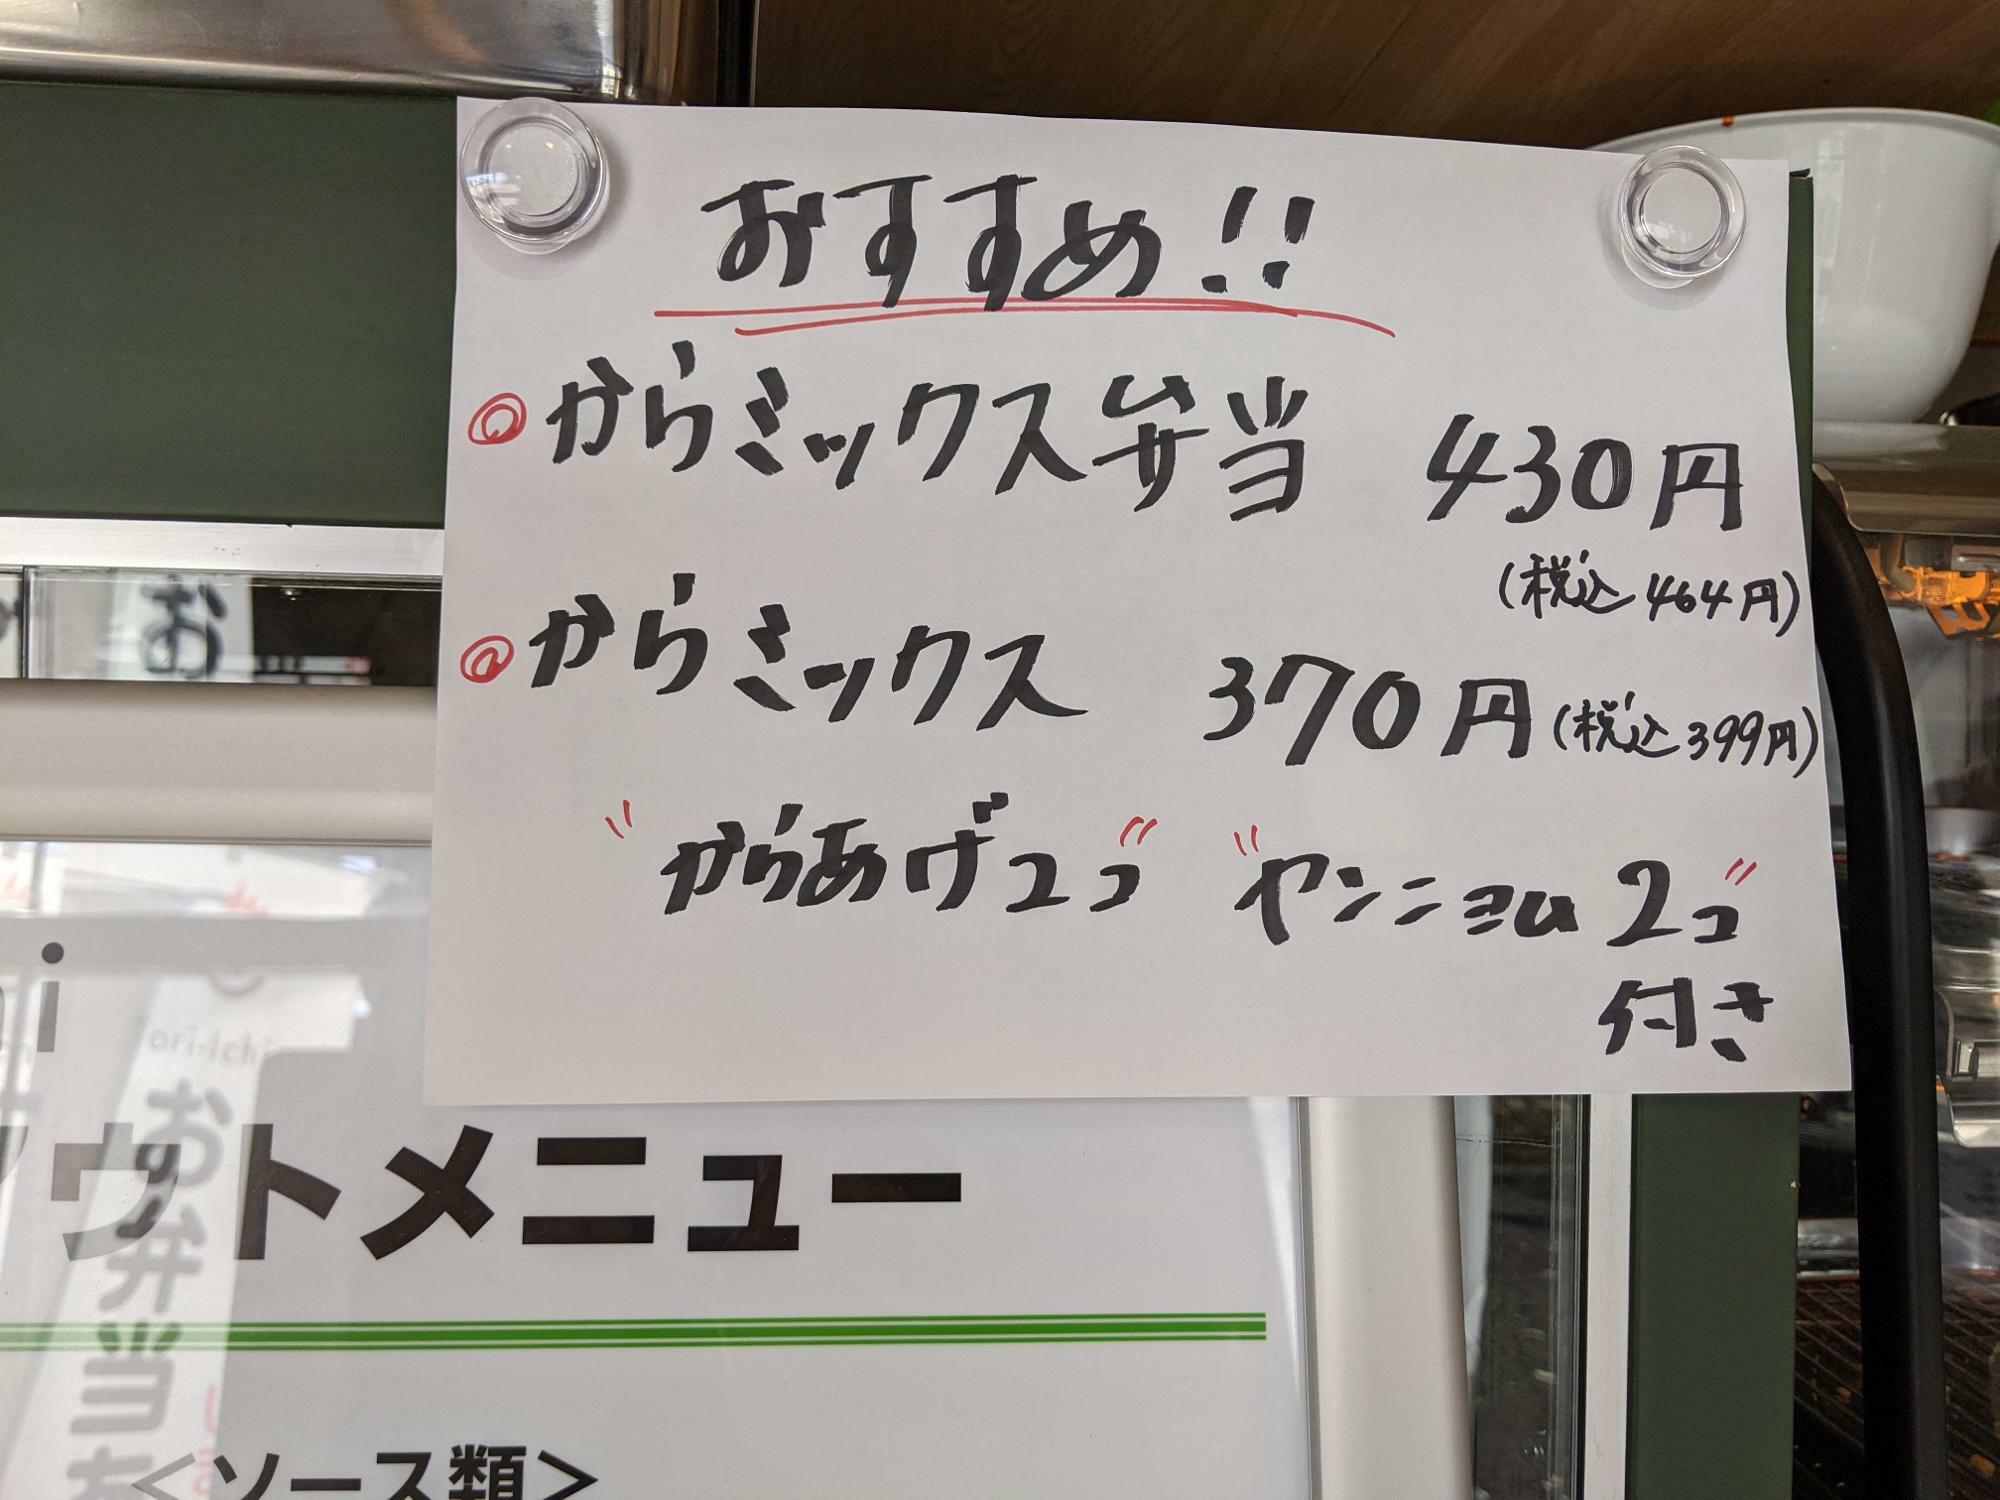 おすすめ!!
◎からミックス弁当 430円
(税込464円)
◎からミックス 370円(税込399円)
"からあげ2コ" "ヤンニョム2コ"
付き
ウトメニュー
お弁当
<ソース類>